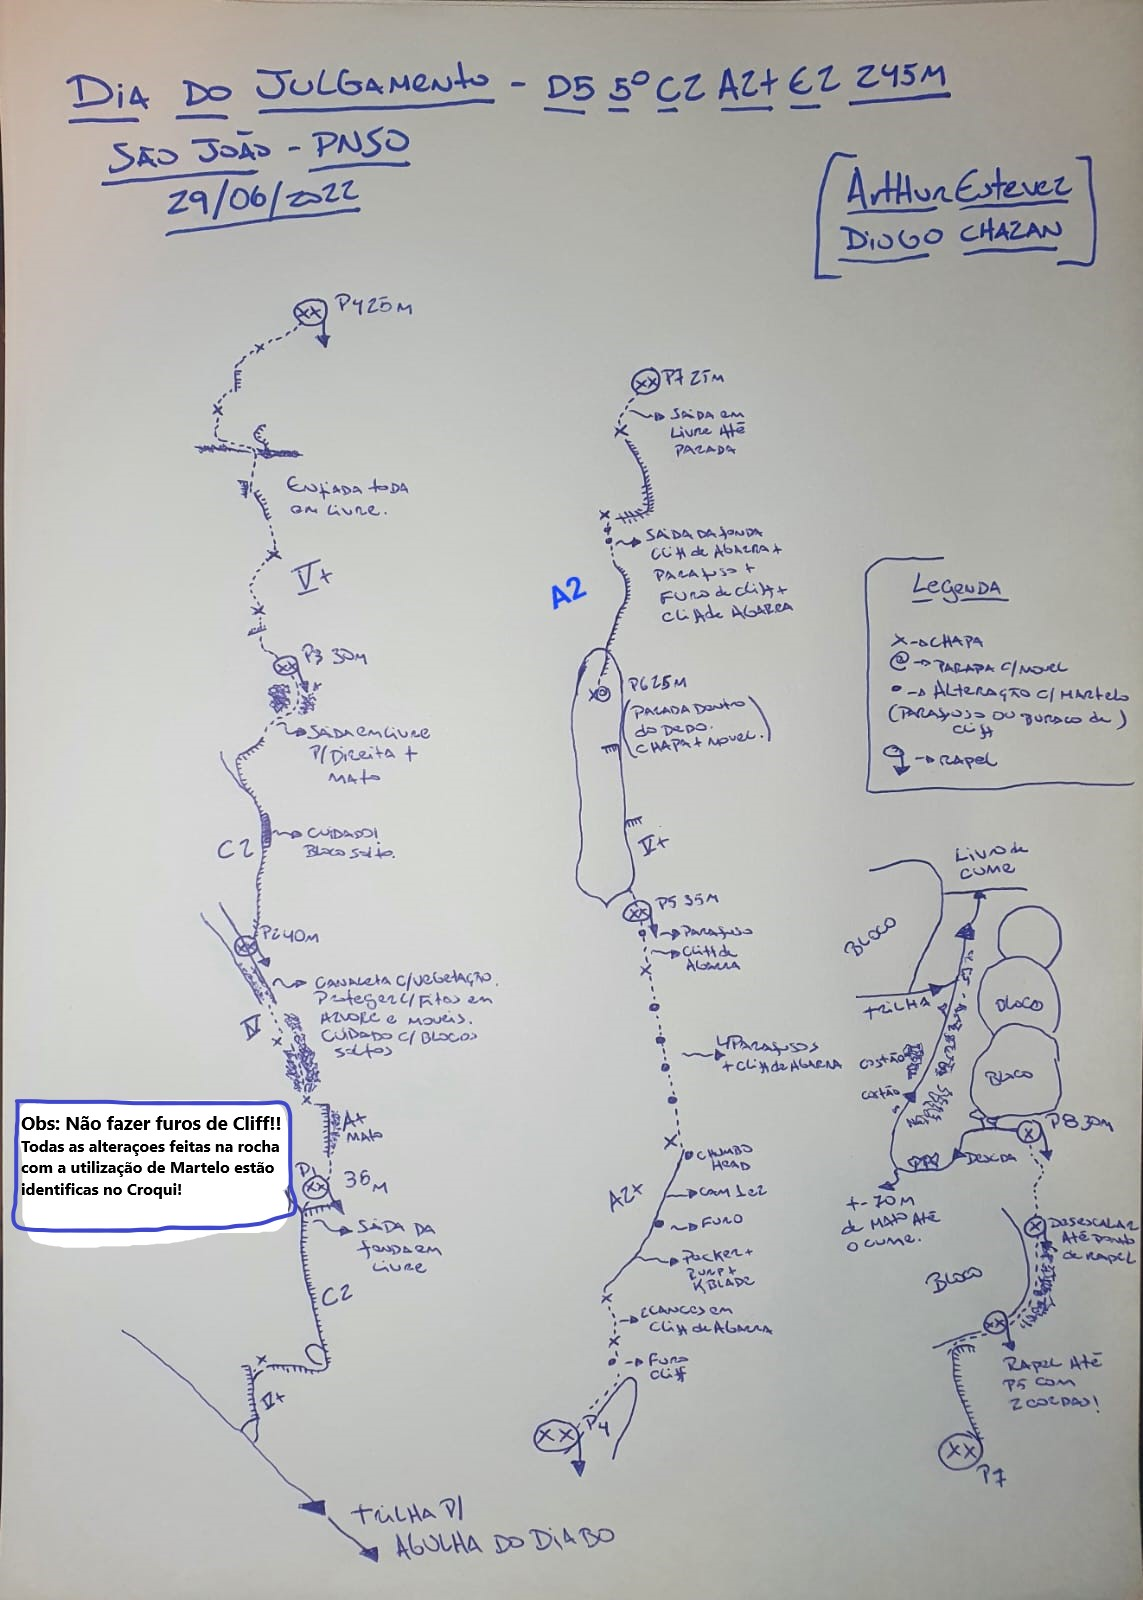 Dia do Julgamento - D5 5º C2 A2+ E2 245m
São João - PNSO
29/06/2022
Arthur Estevez
Diogo Chazan
P4 25m
Enfiada toda
em livre.
V+
P3 30m
Saída em livre
p/ Direita +
mato
C2
Cuidado!
Bloco solto.
P2 40m
Canaleta c/ vegetação.
Proteger c/ fitas em
árvore e moveis.
Cuidado c/ blocos
soltos
IV
A+
mato
Obs: Não fazer furos de Cliff!!
Todas as alteraçoes feitas na rocha
com a utilização de Martelo estão
identificas no Croqui!
P1
36m
Saída da
fenda em
livre
C2
V+
trilha p/
Agulha do Diabo
P7 25m
Saída em
livre até
parada
Saída da fenda
Cliff de Agarra +
Parafuso +
Furo de cliff +
Cliff de Agarra
A2
P6 25m
(Parada dentro
do dedo.
Chapa + movel.)
V+
P5 35m
Parafuso
Cliff de
Agarra
4 Parafusos
+ Cliff de Agarra
Chumbo
head
A2+
Cam 1 e 2
Furo
Pecker +
K Blade
2 lances em
Cliff de Agarra
Furo
cliff
P4
Legenda
X -> Chapa
@ -> Parada c/ movel
• -> Alteração c/ martelo
(Parafuso ou buraco de)
cliff
-> Rapel
Livro de
cume
Bloco
trilha
Bloco
costão
Bloco
costão
P8 30m
Descida
+- 70m
de mato até
o cume.
Desescalar
até ponto
de rapel
Bloco
Rapel até
P5 com
2 cordas!
P7